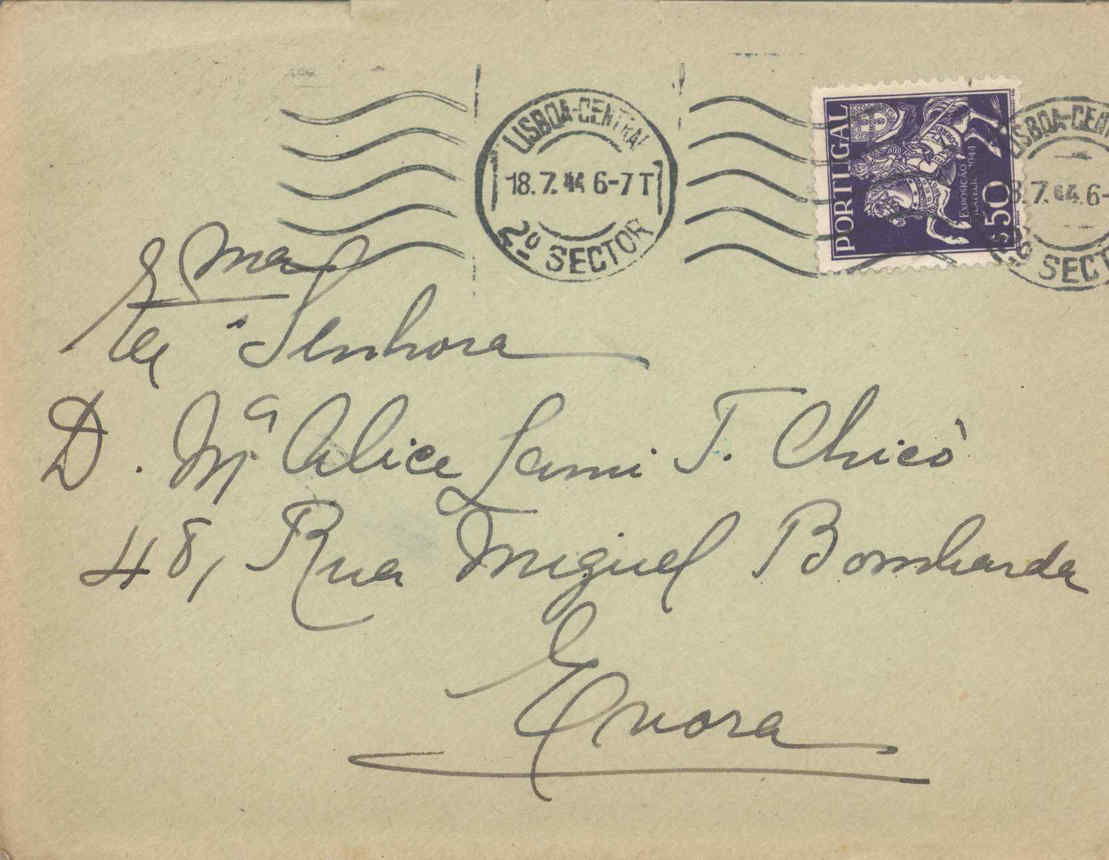 LISBOA-CENTRAL
18.7.44 6-7 T
2º SECTOR
PORTUGAL
EXPOSIÇÃO
$50
LISBOA-CENT
8.7.44.6-
2º SECT
Exma
Senhora
D. Mª Alice Lami T. Chicò
48, Rua Miguel Bombarda
Evora